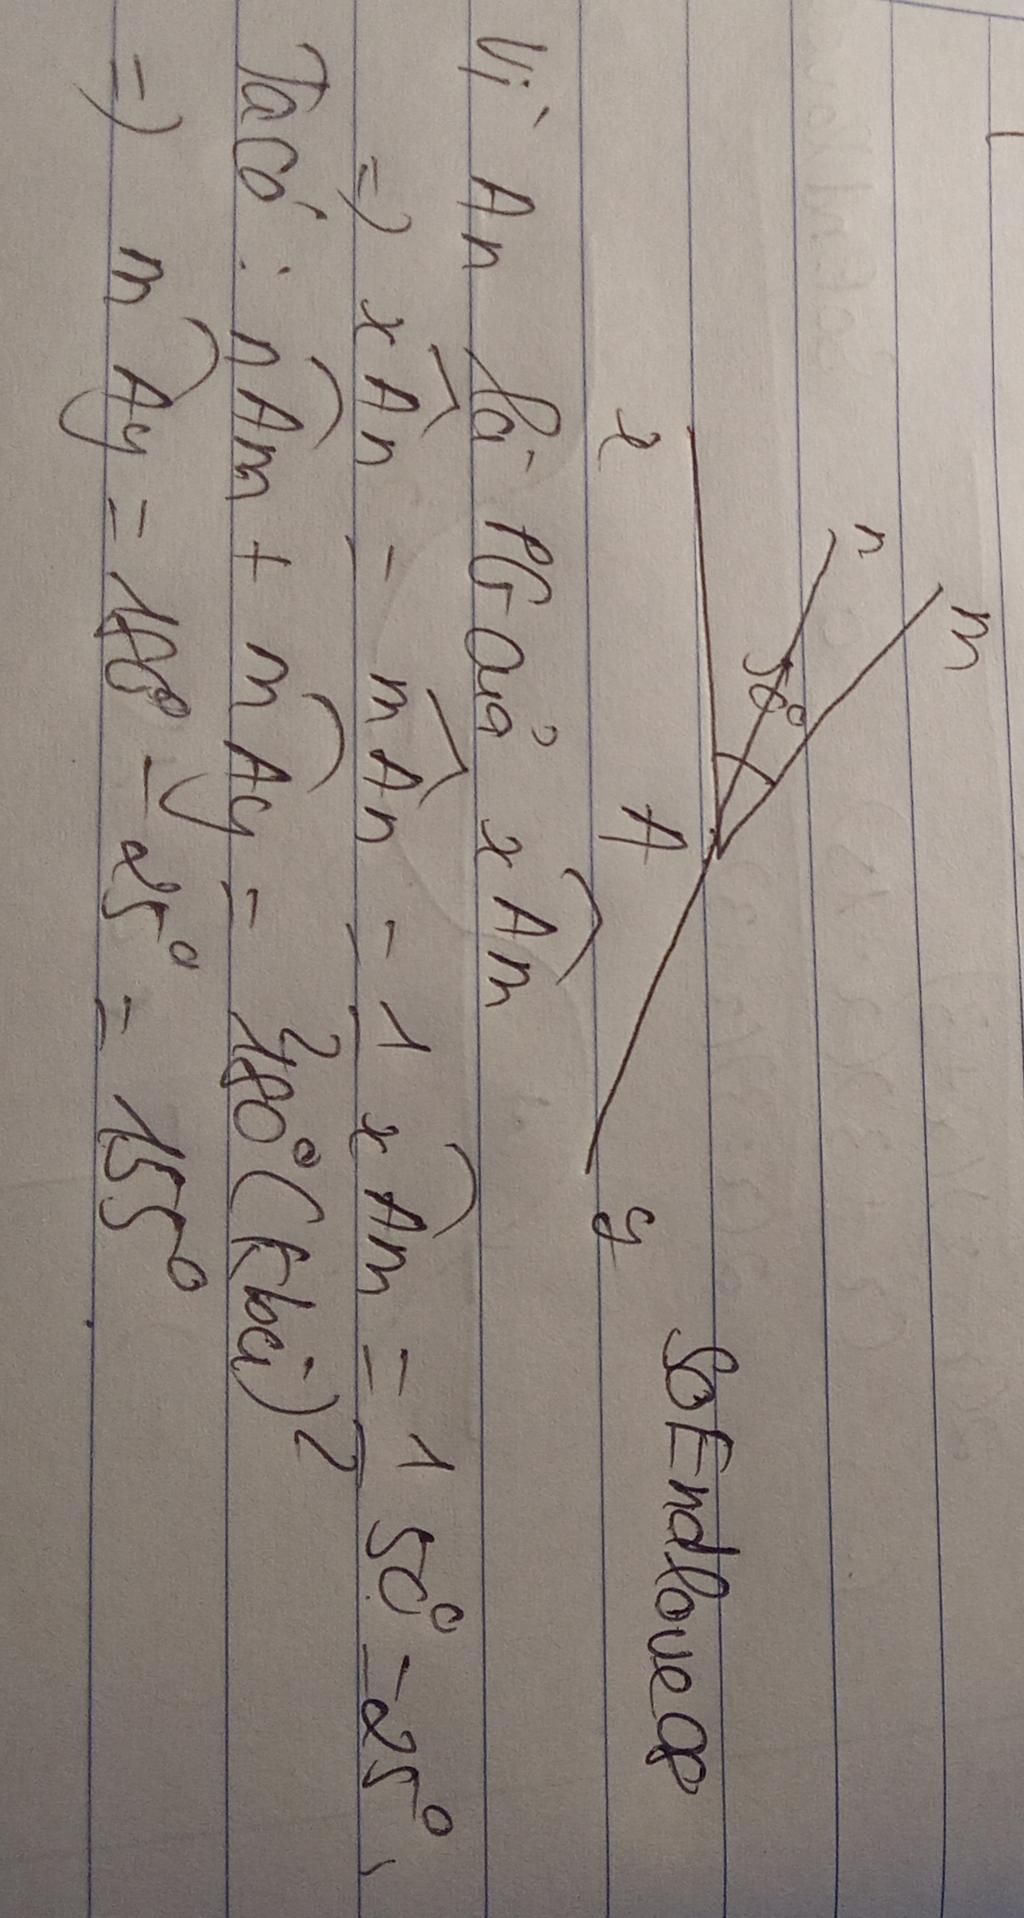 m
n
50°
x
A
y
SoEndloveOS
Vì An là PG của xÂm
=) xÂn = mÂn = 1 xÂm = 1 50° = 25°
2 2
Ta có : nÂm + mÂy = 180° (kbù)
=) mÂy = 180° - 25° = 155°